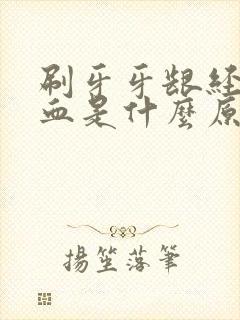 刷牙牙龈经
血是什麼原
揚笙落筆